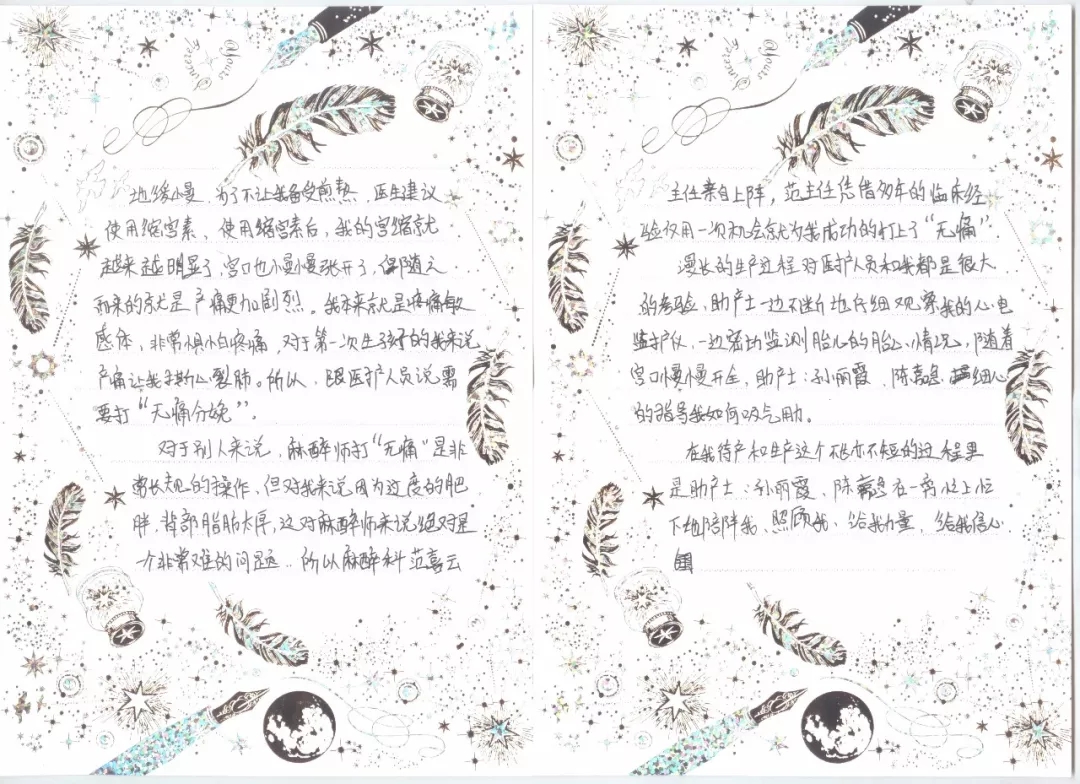 @Yours
Sincerely
地缓慢，为了不让我备受煎熬，医生建议
使用缩宫素、使用缩宫素后，我的宫缩就
越来越明显了，宫口也慢慢张开了，伴随之
而来的就是产痛更加剧烈。我本来就是疼痛敏
感体、非常惧怕疼痛，对于第一次生孩子的我来说
产痛让我撕心裂肺。所以，跟医护人员说需
要打“无痛分娩”。
对于别人来说，麻醉师打“无痛”是非
常长见的操作、但对我来说因为过度的肥
胖，背部脂肪太厚，这对麻醉师来说绝对是
一个非常难的问题，所以麻醉科范喜云
@Yours
Sincerely
主任亲自上阵，范主任凭借多年的临床经
验仅用一次机会就为我成功的打上了“无痛”.
漫长的生产过程对医护人员和我都是很大
的考验，助产士一边不断地仔细观察我的心电
监护仪，一边密切监测胎儿的胎心情况，随着
宫口慢慢开全，助产士：孙丽霞、陈 细心
的指导我如何吸气用力。
在我待产和生产这个不长亦不短的过程里
是助产士：孙丽霞、陈 在一旁忙上忙
下地陪伴我、照顾我、给我力量，给我信心